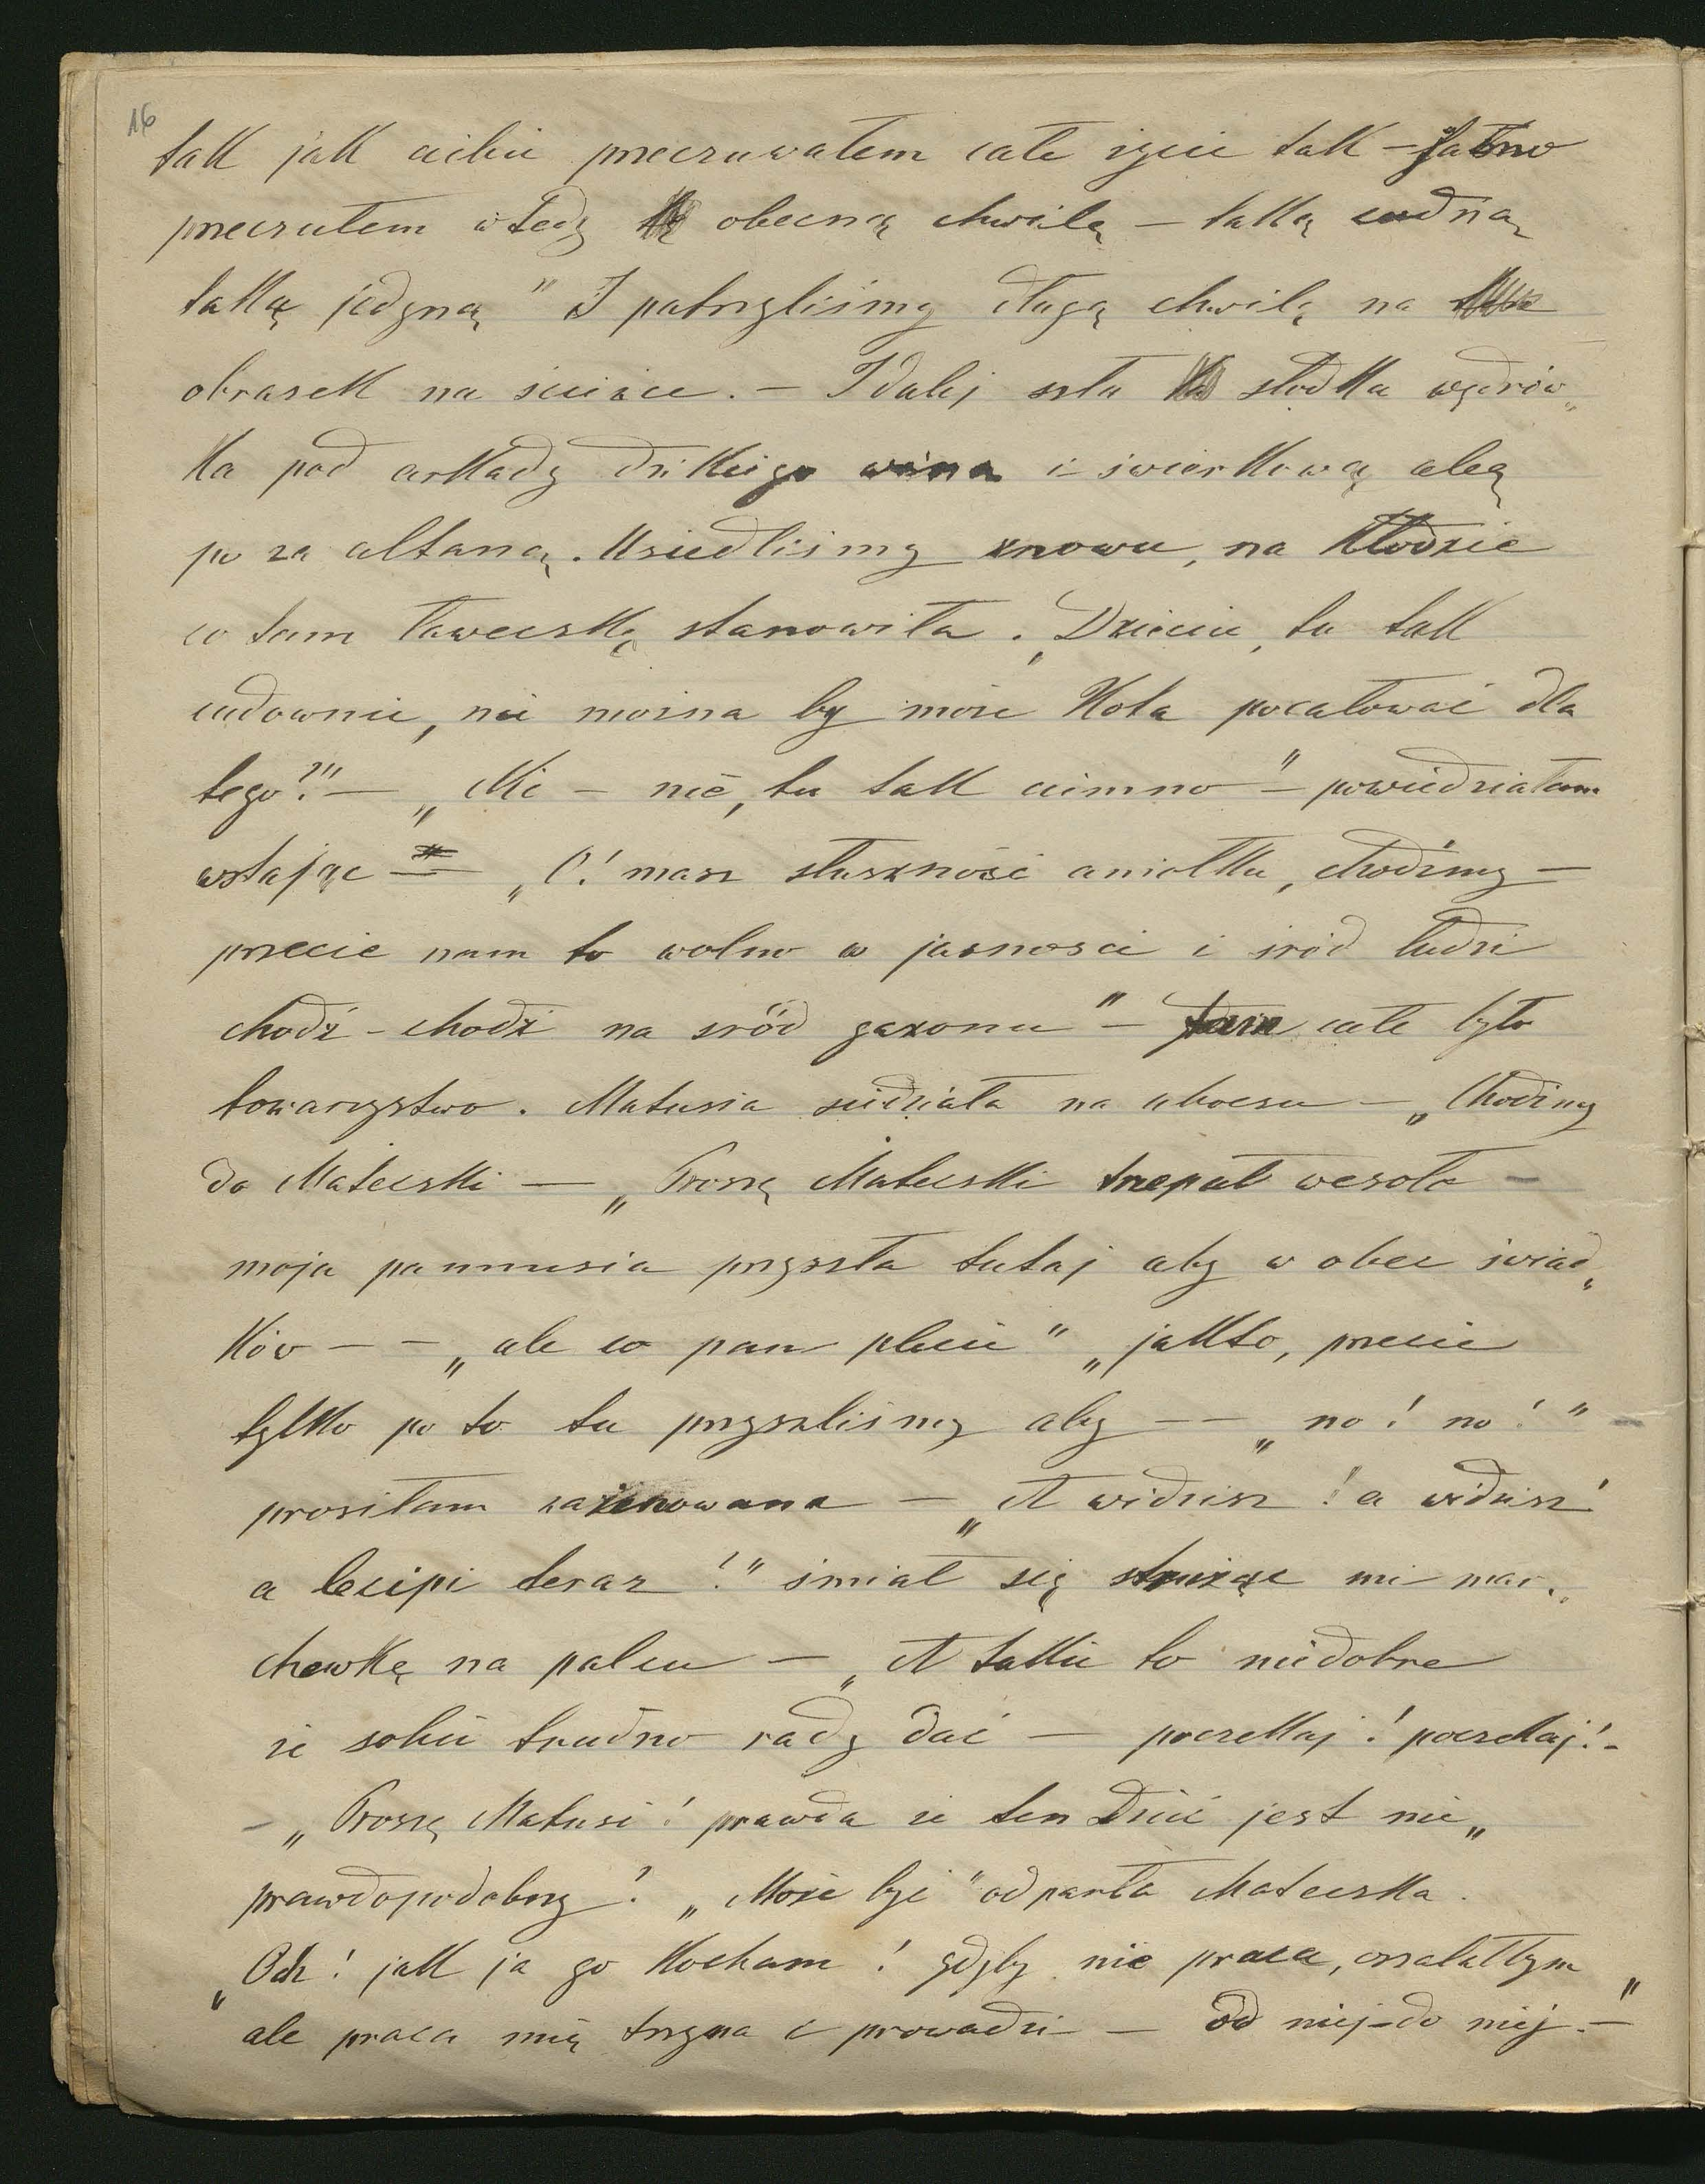 16
tak jak ciebie przeczuwałem całe życie tak – jasno
przeczułem wtedy obecną chwilę – taką cudną
taką jedyną" I patrzyliśmy długą chwilę na
obrazek na ścianie. – I dalej szła słodka wędrów„
ka pod arkady dzikiego wina i świerkową aleą
po za altaną. Usiedliśmy znowu, na kłodzie
co tam ławeczkę stanowiła. „Dziecie, tu tak
cudownie, nie można by może Kota pocałować dla
tego?!" – „Nie – nie, tu tak ciemno" – powiedziałam
wstając – „O! masz słuszność aniołku, chodźmy –
przecie nam to wolno w jasności i śród ludzi
chodź – chodź na sród gazonu" – tam całe było
towarzystwo. Matusia siedziała na uboczu – „Chodźmy
do Mateczki – „Proszę Mateczki trzepał wesoło –
moja pannusia przyszła tutaj aby w obec świad„
ków – – „ale co pan plecie" „jakto, przecie
tylko po to tu przyszliśmy aby – – „no! no!"
prosiłam zażenowana – „A widzisz! a widzisz!
a lecipi teraz!" śmiał się strużąc mi mar„
chewkę na palcu – „A takie to niedobre
że sobie trudno rady dać – poczekaj! poczekaj! –
– „Proszę Matusi! prawda że ten Dzieć jest nie„
prawdopodobny? „Może być" odparła Mateczka.
„Och! jak ja go kocham! gdyby nie praca, oszalałbym
ale praca mię trzyma i prowadzi – od niej – do niej. –"